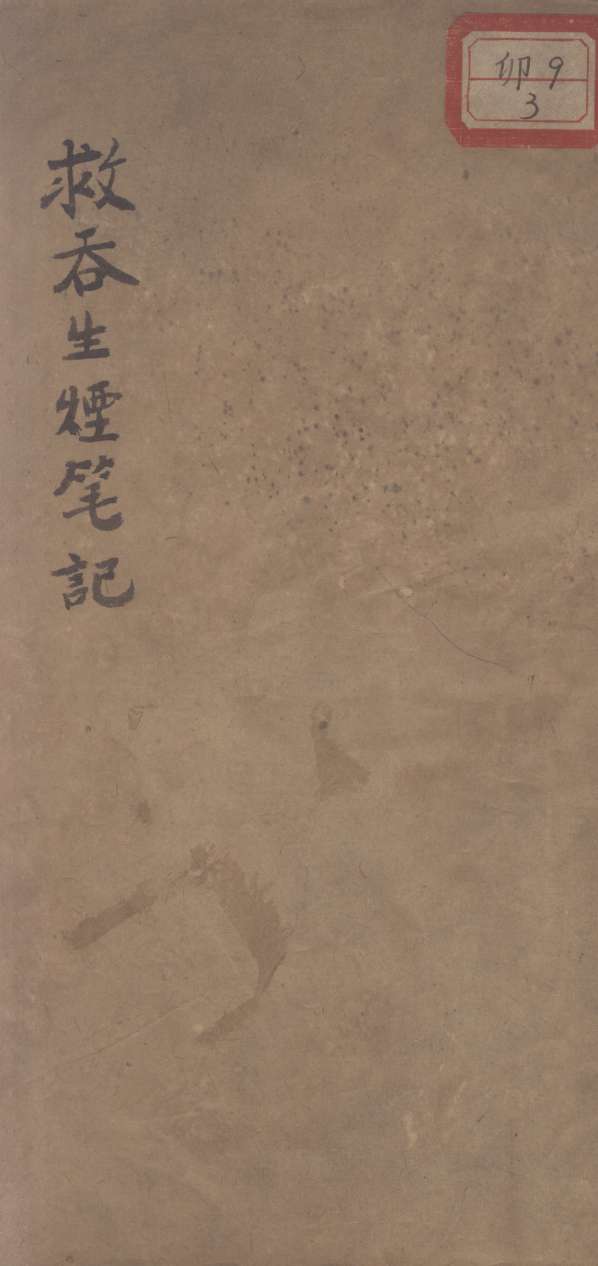 卯9
3
救吞生煙笔記